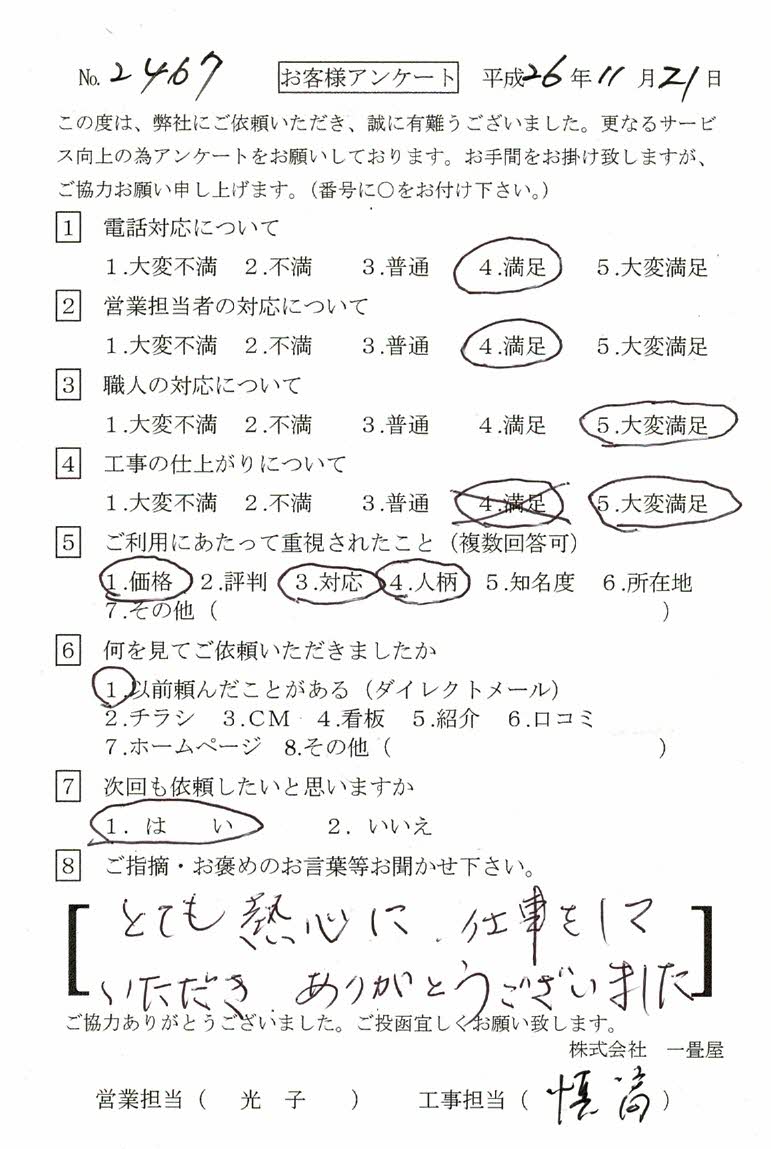 No. 2467 お客様アンケート 平成26年11月21日
この度は、弊社にご依頼いただき、誠に有難うございました。更なるサービ
ス向上の為アンケートをお願いしております。お手間をお掛け致しますが、
ご協力お願い申し上げます。（番号に〇をお付け下さい。）
1 電話対応について
1.大変不満 2.不満 3.普通 4.満足 5.大変満足
2 営業担当者の対応について
1.大変不満 2.不満 3.普通 4.満足 5.大変満足
3 職人の対応について
1.大変不満 2.不満 3.普通 4.満足 5.大変満足
4 工事の仕上がりについて
1.大変不満 2.不満 3.普通 4.満足 5.大変満足
5 ご利用にあたって重視されたこと（複数回答可）
1.価格 2.評判 3.対応 4.人柄 5.知名度 6.所在地
7.その他（ ）
6 何を見てご依頼いただきましたか
1.以前頼んだことがある（ダイレクトメール）
2.チラシ 3.CM 4.看板 5.紹介 6.口コミ
7.ホームページ 8.その他（ ）
7 次回も依頼したいと思いますか
1. は い 2. いいえ
8 ご指摘・お褒めのお言葉等お聞かせ下さい。
とても熱心に、仕事をして
いただき ありがとうございました
ご協力ありがとうございました。ご投函宜しくお願い致します。
株式会社 一畳屋
営業担当（ 光 子 ） 工事担当（ ）